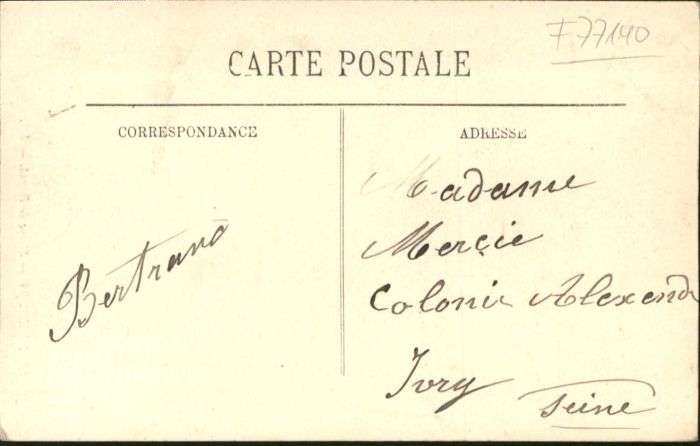 F77140
CARTE POSTALE
CORRESPONDANCE
ADRESSE
Bertrand
Madame
Merçie
Colonie Alexend
Ivry Seine